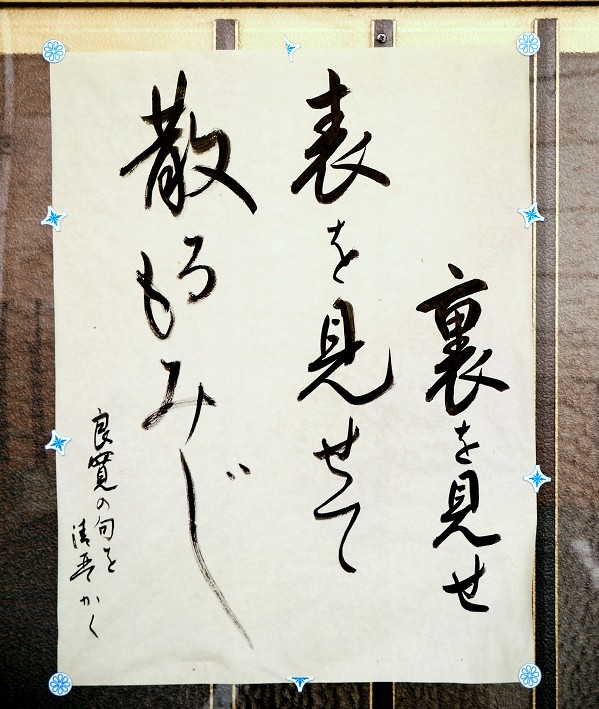 裏を見せ
表を見せて
散るもみじ
良寛の句を
清吾かく